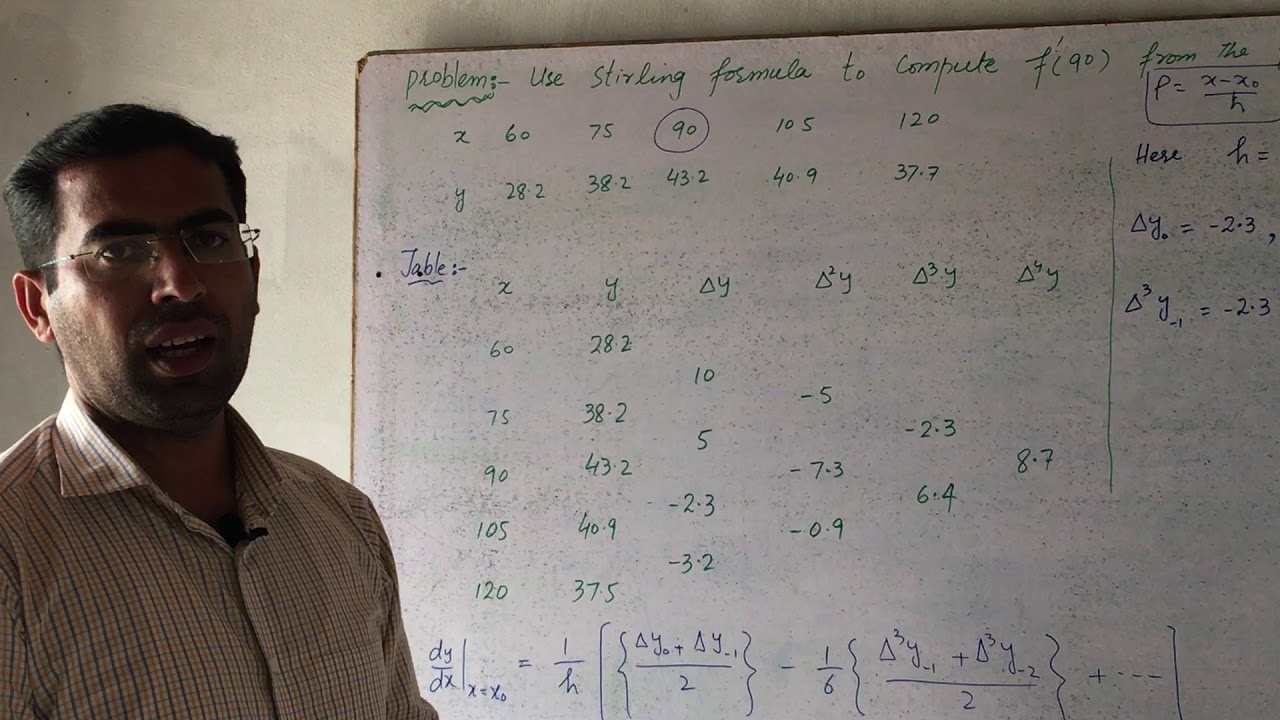 Problem:- Use Stirling formula to compute f'(90) from the
P = x-x₀/h
x 60 75 90 105 120
y 28.2 38.2 43.2 40.9 37.7
Here h =
Δy₀ = -2.3,
Δ³y₋₁ = -2.3
Table:-
x y Δy Δ²y Δ³y Δ⁴y
60 28.2
10
-5
75 38.2
-2.3
5
90 43.2 -7.3 8.7
6.4
-2.3
105 40.9 -0.9
-3.2
120 37.5
dy/dx|x=x₀ = 1/h [{Δy₀ + Δy₋₁/2} - 1/6 {Δ³y₋₁ + Δ³y₋₂/2} + ---]